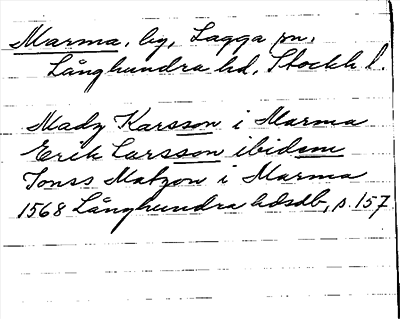 Marma, by, Lagga sn,
Långhundra hd, Stockh l.
Madz Karsson i Marma
Erik Larsson ibidem
Jonss Matzon i Marma
1568 Långhundra hdsdb, p. 157